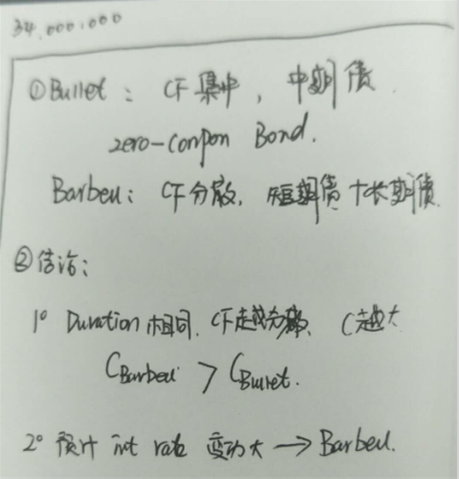 34,000,000
①Bullet: CF集中，中期债.
zero-Conpon Bond.
Barbell: CF分散, 短期债+长期债
②结论:
1° Duration相同. CF越分散、C越大
C Barbell > C Bullet.
2° 预计 int rate 变动大→Barbell.